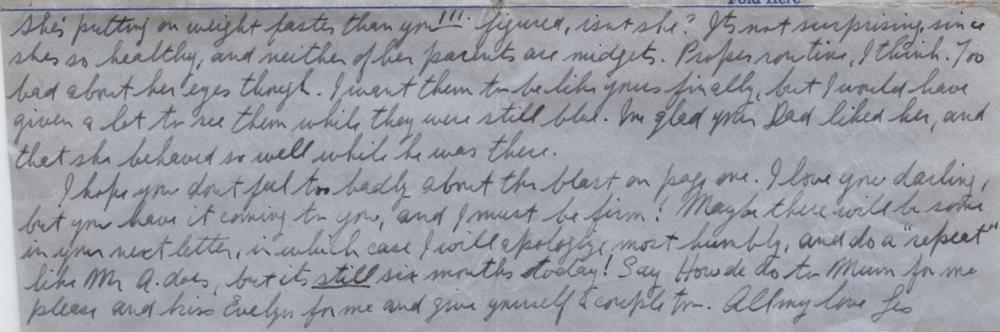 Fold Here
she's putting on weight faster than you!!! figured, isn't she? It's not surprising, since
she's so healthy, and neither of her parents are midgets. Proper routine, I think. Too
bad about her eyes though. I want them to be like yours finally, but I would have
given a lot to see them while they were still blue. I'm glad your Dad liked her, and
that she behaved so well while he was there.
I hope you don't feel too badly about the blast on page one. I love you darling,
but you have it coming to you, and I must be firm! Maybe there will be some
in your next letter, in which case I will apologize, most humbly, and do a "repeat"
like Mr. A. does, but it's still six months today! Say Howde do to Mum for me
please and kiss Evelyn for me and give yourself a couple too. All my love Les